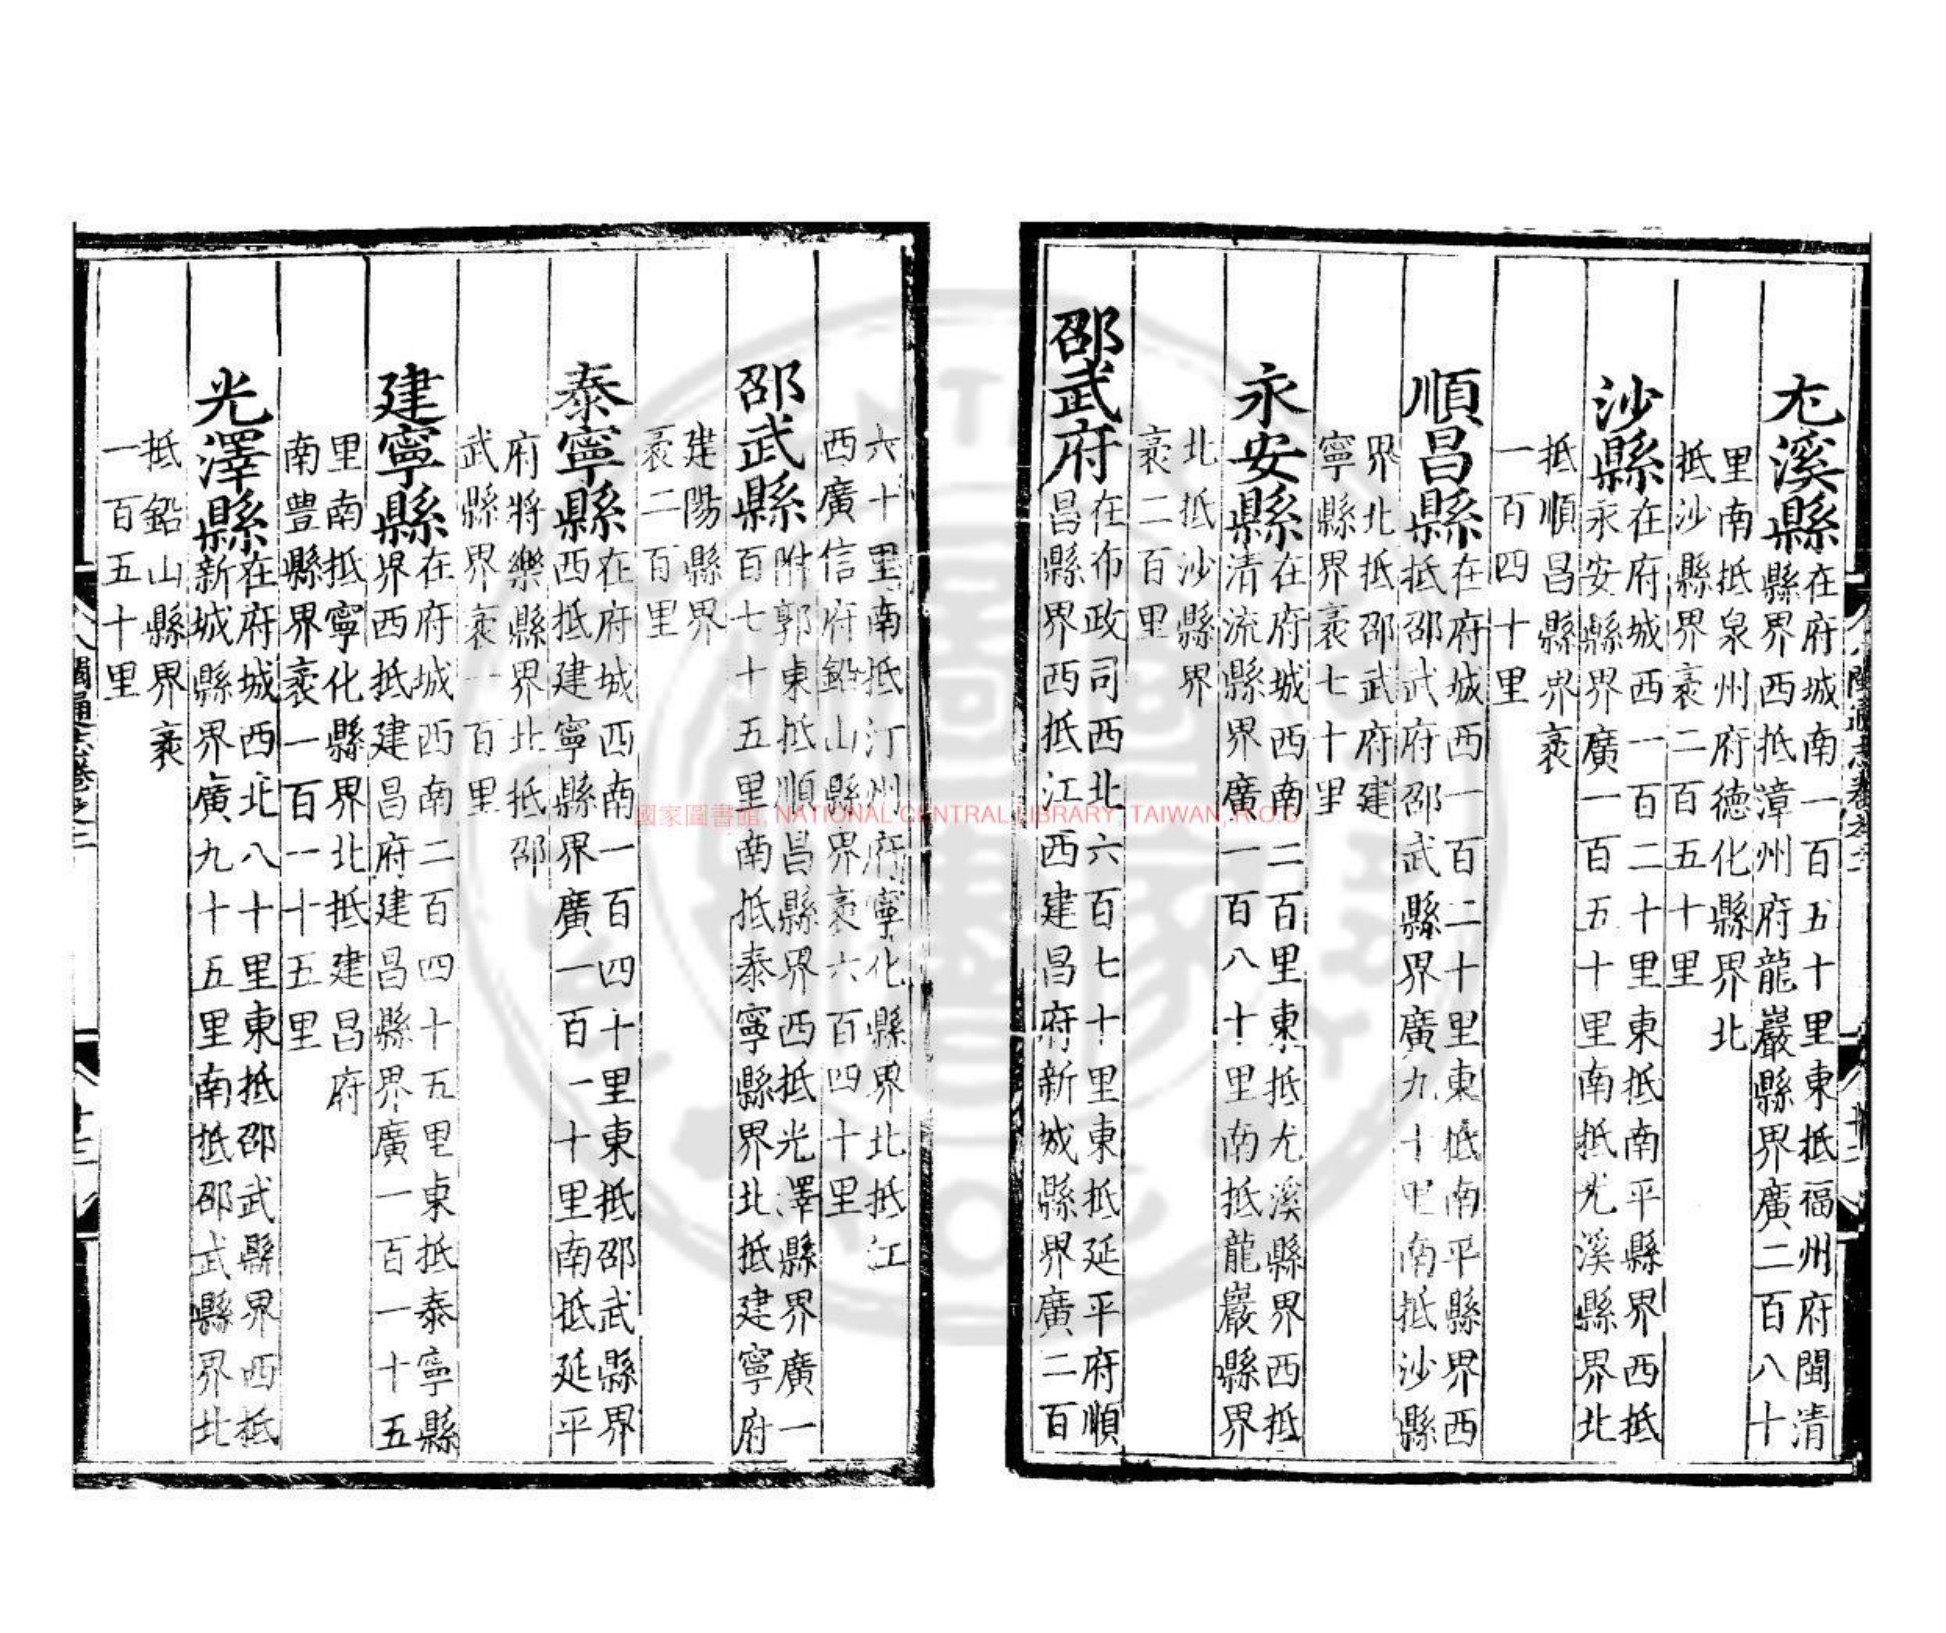 尤溪縣
在府城南一百五十里東抵福州府閩清
縣界西抵漳州府龍巖縣界廣二百八十
里南抵泉州府德化縣界北
抵沙縣界袤二百五十里
沙縣
在府城西一百二十里東抵南平縣界西抵
永安縣界廣一百五十里南抵尤溪縣界北
抵順昌縣界袤
一百四十里
順昌縣
在府城西一百二十里東抵南平縣界西
抵邵武府邵武縣界廣九十里南抵沙縣
界北抵邵武府建
寧縣界袤七十里
永安縣
在府城西南二百里東抵尤溪縣界西抵
清流縣界廣一百八十里南抵龍巖縣界
北抵沙縣界
袤二百里
邵武府
在布政司西北六百七十里東抵延平府順
昌縣界西抵江西建昌府新城縣界廣二百
六十里南抵汀州府寧化縣界北抵江
西廣信府鉛山縣界袤六百四十里
邵武縣
附郭東抵順昌縣界西抵光澤縣界廣一
百七十五里南抵泰寧縣界北抵建寧府
建陽縣界
袤二百里
泰寧縣
在府城西南一百四十里東抵邵武縣界
西抵建寧縣界廣一百一十里南抵延平
府將樂縣界北抵邵
武縣界袤一百里
建寧縣
在府城西南二百四十五里東抵泰寧縣
界西抵建昌府建昌縣界廣一百一十五
里南抵寧化縣界北抵建昌府
南豐縣界袤一百一十五里
光澤縣
在府城西北八十里東抵邵武縣界西抵
新城縣界廣九十五里南抵邵武縣界北
抵鉛山縣界袤
一百五十里
閩通志卷之二
十三
國家圖書館, NATIONAL CENTRAL LIBRARY, TAIWAN, R.O.C